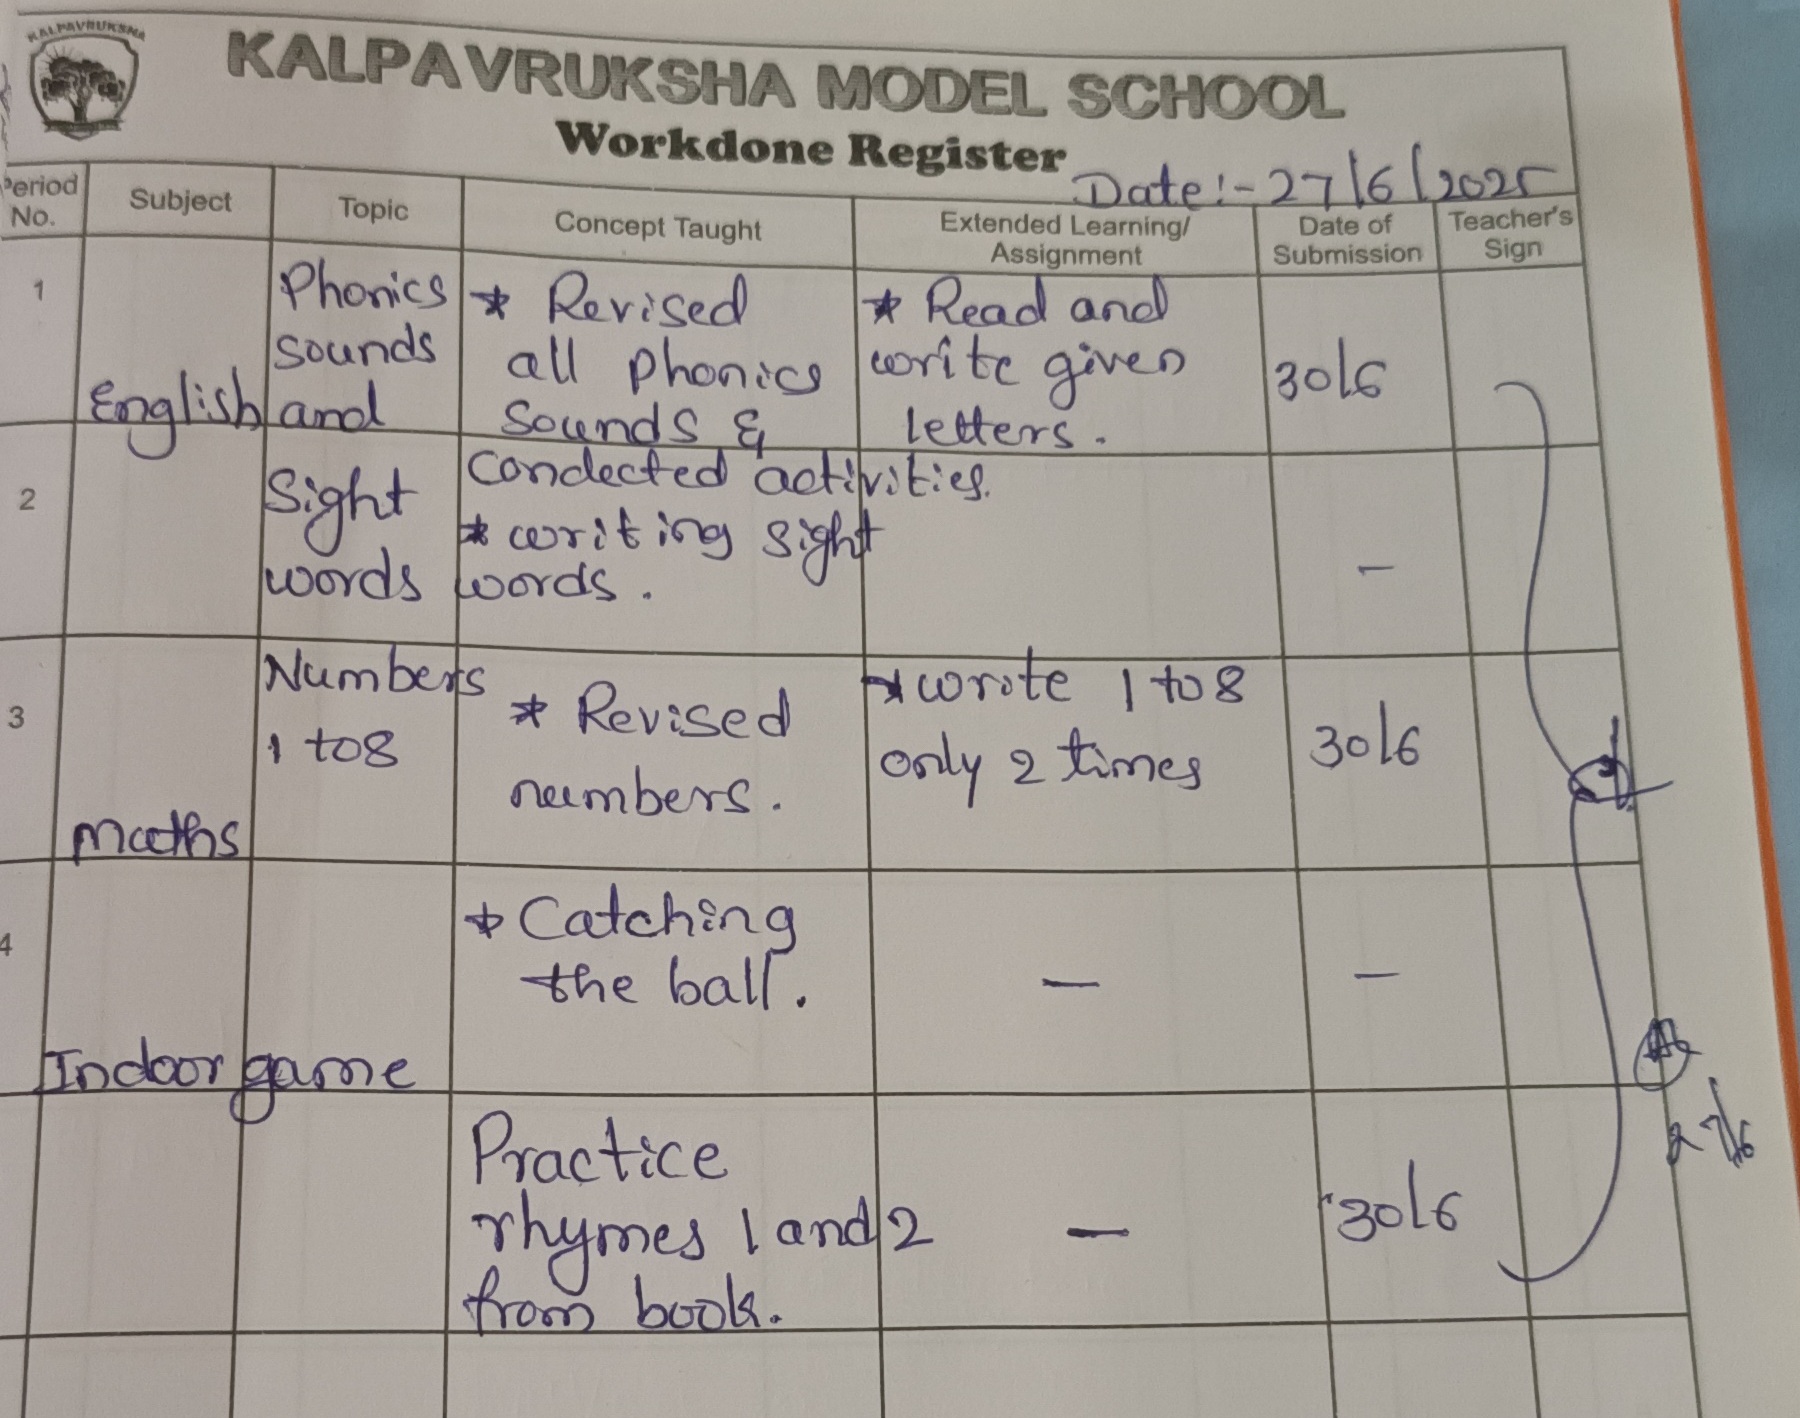 KALPAVRUKSHA
KALPAVRUKSHA MODEL SCHOOL
Workdone Register
Date:- 27/6/2025
Period No.
Subject
Topic
Concept Taught
Extended Learning/ Assignment
Date of Submission
Teacher's Sign
1
English
Phonics
sounds
and
* Revised
all phonics
sounds &
* Read and
write given
letters.
30/6
2
Sight
words
Condected activities.
* writing sight
words.
-
3
Maths
Numbers
1 to 8
* Revised
numbers.
* wrote 1 to 8
only 2 times
30/6
4
Indoor game
* Catching
the ball.
-
-
Practice
rhymes 1 and 2
from book.
-
30/6
27/6